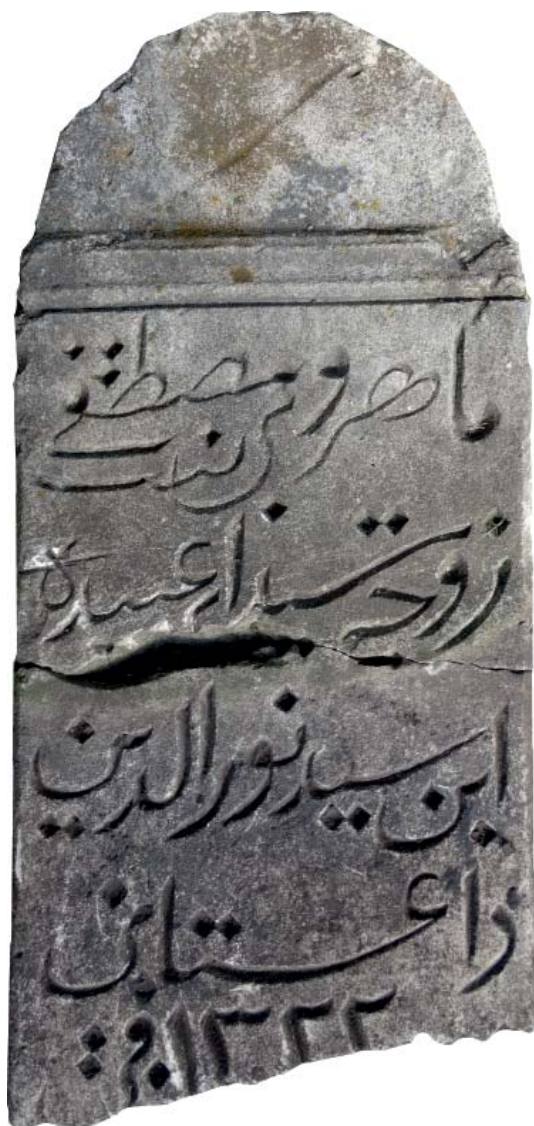 ماهروس بنت مصطفى
زوجه سيد عبيده
ابن سيد نور الدين
داغستانى
١٣٢٢